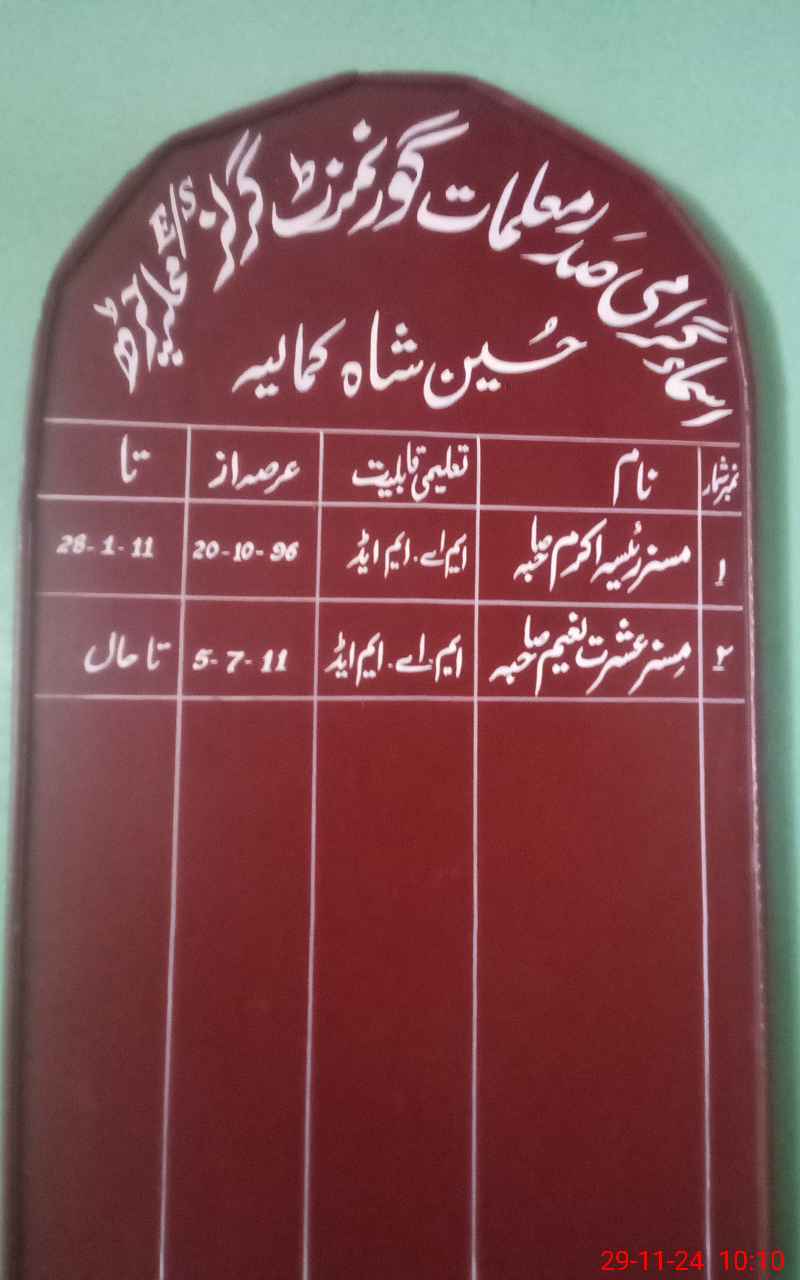 اسماء گرامی صدر معلمات گورنمنٹ گرلز E/S محلہ
حُسین شاہ کمالیہ
نمبر شمار نام تعلیمی قابلیت عرصہ از تا
۱ مسز رئیسہ اکرم صاحبہ ایم اے۔ ایم ایڈ 20-10-96 28-1-11
۲ مسز عشرت نعیم صاحبہ ایم اے۔ ایم ایڈ 5-7-11 تا حال
29-11-24 10:10